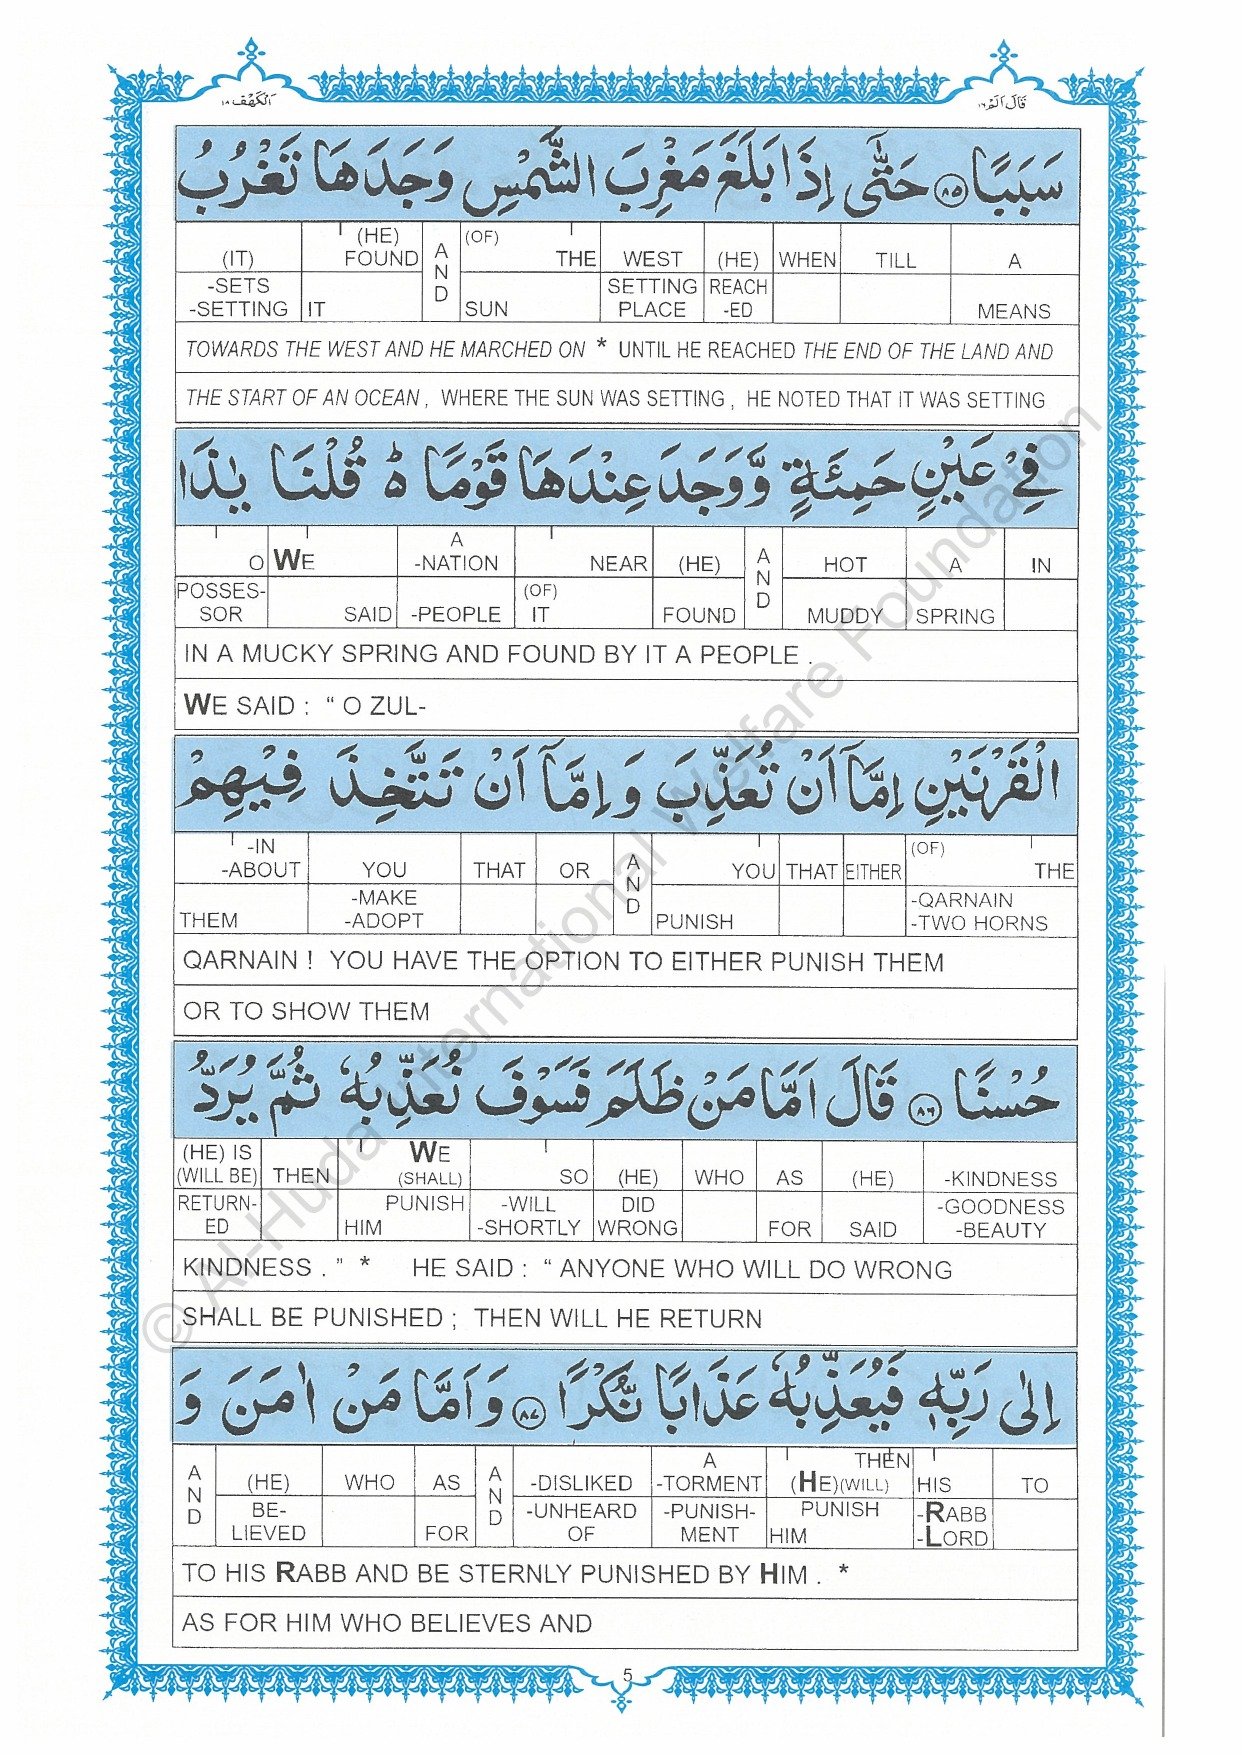 قَالَ اَلَمْ ١٦
اَلْكَهْف ١٨
سَبَبًا ﴿٨٥﴾ حَتّٰۤى اِذَا بَلَغَ مَغْرِبَ الشَّمْسِ وَجَدَهَا تَغْرُبُ
(IT) (HE) FOUND A N D (OF) THE WEST (HE) WHEN TILL A
-SETS -SETTING IT SUN SETTING PLACE REACH -ED MEANS
TOWARDS THE WEST AND HE MARCHED ON * UNTIL HE REACHED THE END OF THE LAND AND
THE START OF AN OCEAN , WHERE THE SUN WAS SETTING , HE NOTED THAT IT WAS SETTING
فِيْ عَيْنٍ حَمِئَةٍ وَّوَجَدَ عِنْدَهَا قَوْمًا ؕ قُلْنَا يٰذَا
O WE A -NATION NEAR (HE) A N D HOT A IN
POSSES- SOR SAID -PEOPLE (OF) IT FOUND MUDDY SPRING
IN A MUCKY SPRING AND FOUND BY IT A PEOPLE .
WE SAID : “ O ZUL-
الْقَرْنَيْنِ اِمَّاۤ اَنْ تُعَذِّبَ وَ اِمَّاۤ اَنْ تَتَّخِذَ فِيْهِمْ
-IN -ABOUT YOU THAT OR A N D YOU THAT EITHER (OF) THE
THEM -MAKE -ADOPT PUNISH -QARNAIN -TWO HORNS
QARNAIN ! YOU HAVE THE OPTION TO EITHER PUNISH THEM
OR TO SHOW THEM
حُسْنًا ﴿٨٦﴾ قَالَ اَمَّا مَنْ ظَلَمَ فَسَوْفَ نُعَذِّبُهٗ ثُمَّ يُرَدُّ
(HE) IS (WILL BE) THEN WE (SHALL) SO (HE) WHO AS (HE) -KINDNESS
RETURN- ED PUNISH HIM -WILL -SHORTLY DID WRONG FOR SAID -GOODNESS -BEAUTY
KINDNESS . ” * HE SAID : “ ANYONE WHO WILL DO WRONG
SHALL BE PUNISHED ; THEN WILL HE RETURN
اِلٰى رَبِّهٖ فَيُعَذِّبُهٗ عَذَابًا نُّكْرًا ﴿٨٧﴾ وَاَمَّا مَنْ اٰمَنَ وَ
A N D (HE) WHO AS A N D -DISLIKED A -TORMENT THEN (HE)(WILL) HIS TO
BE- LIEVED FOR -UNHEARD OF -PUNISH- MENT PUNISH HIM -RABB -LORD
TO HIS RABB AND BE STERNLY PUNISHED BY HIM . *
AS FOR HIM WHO BELIEVES AND
5
© Al-Huda International Welfare Foundation